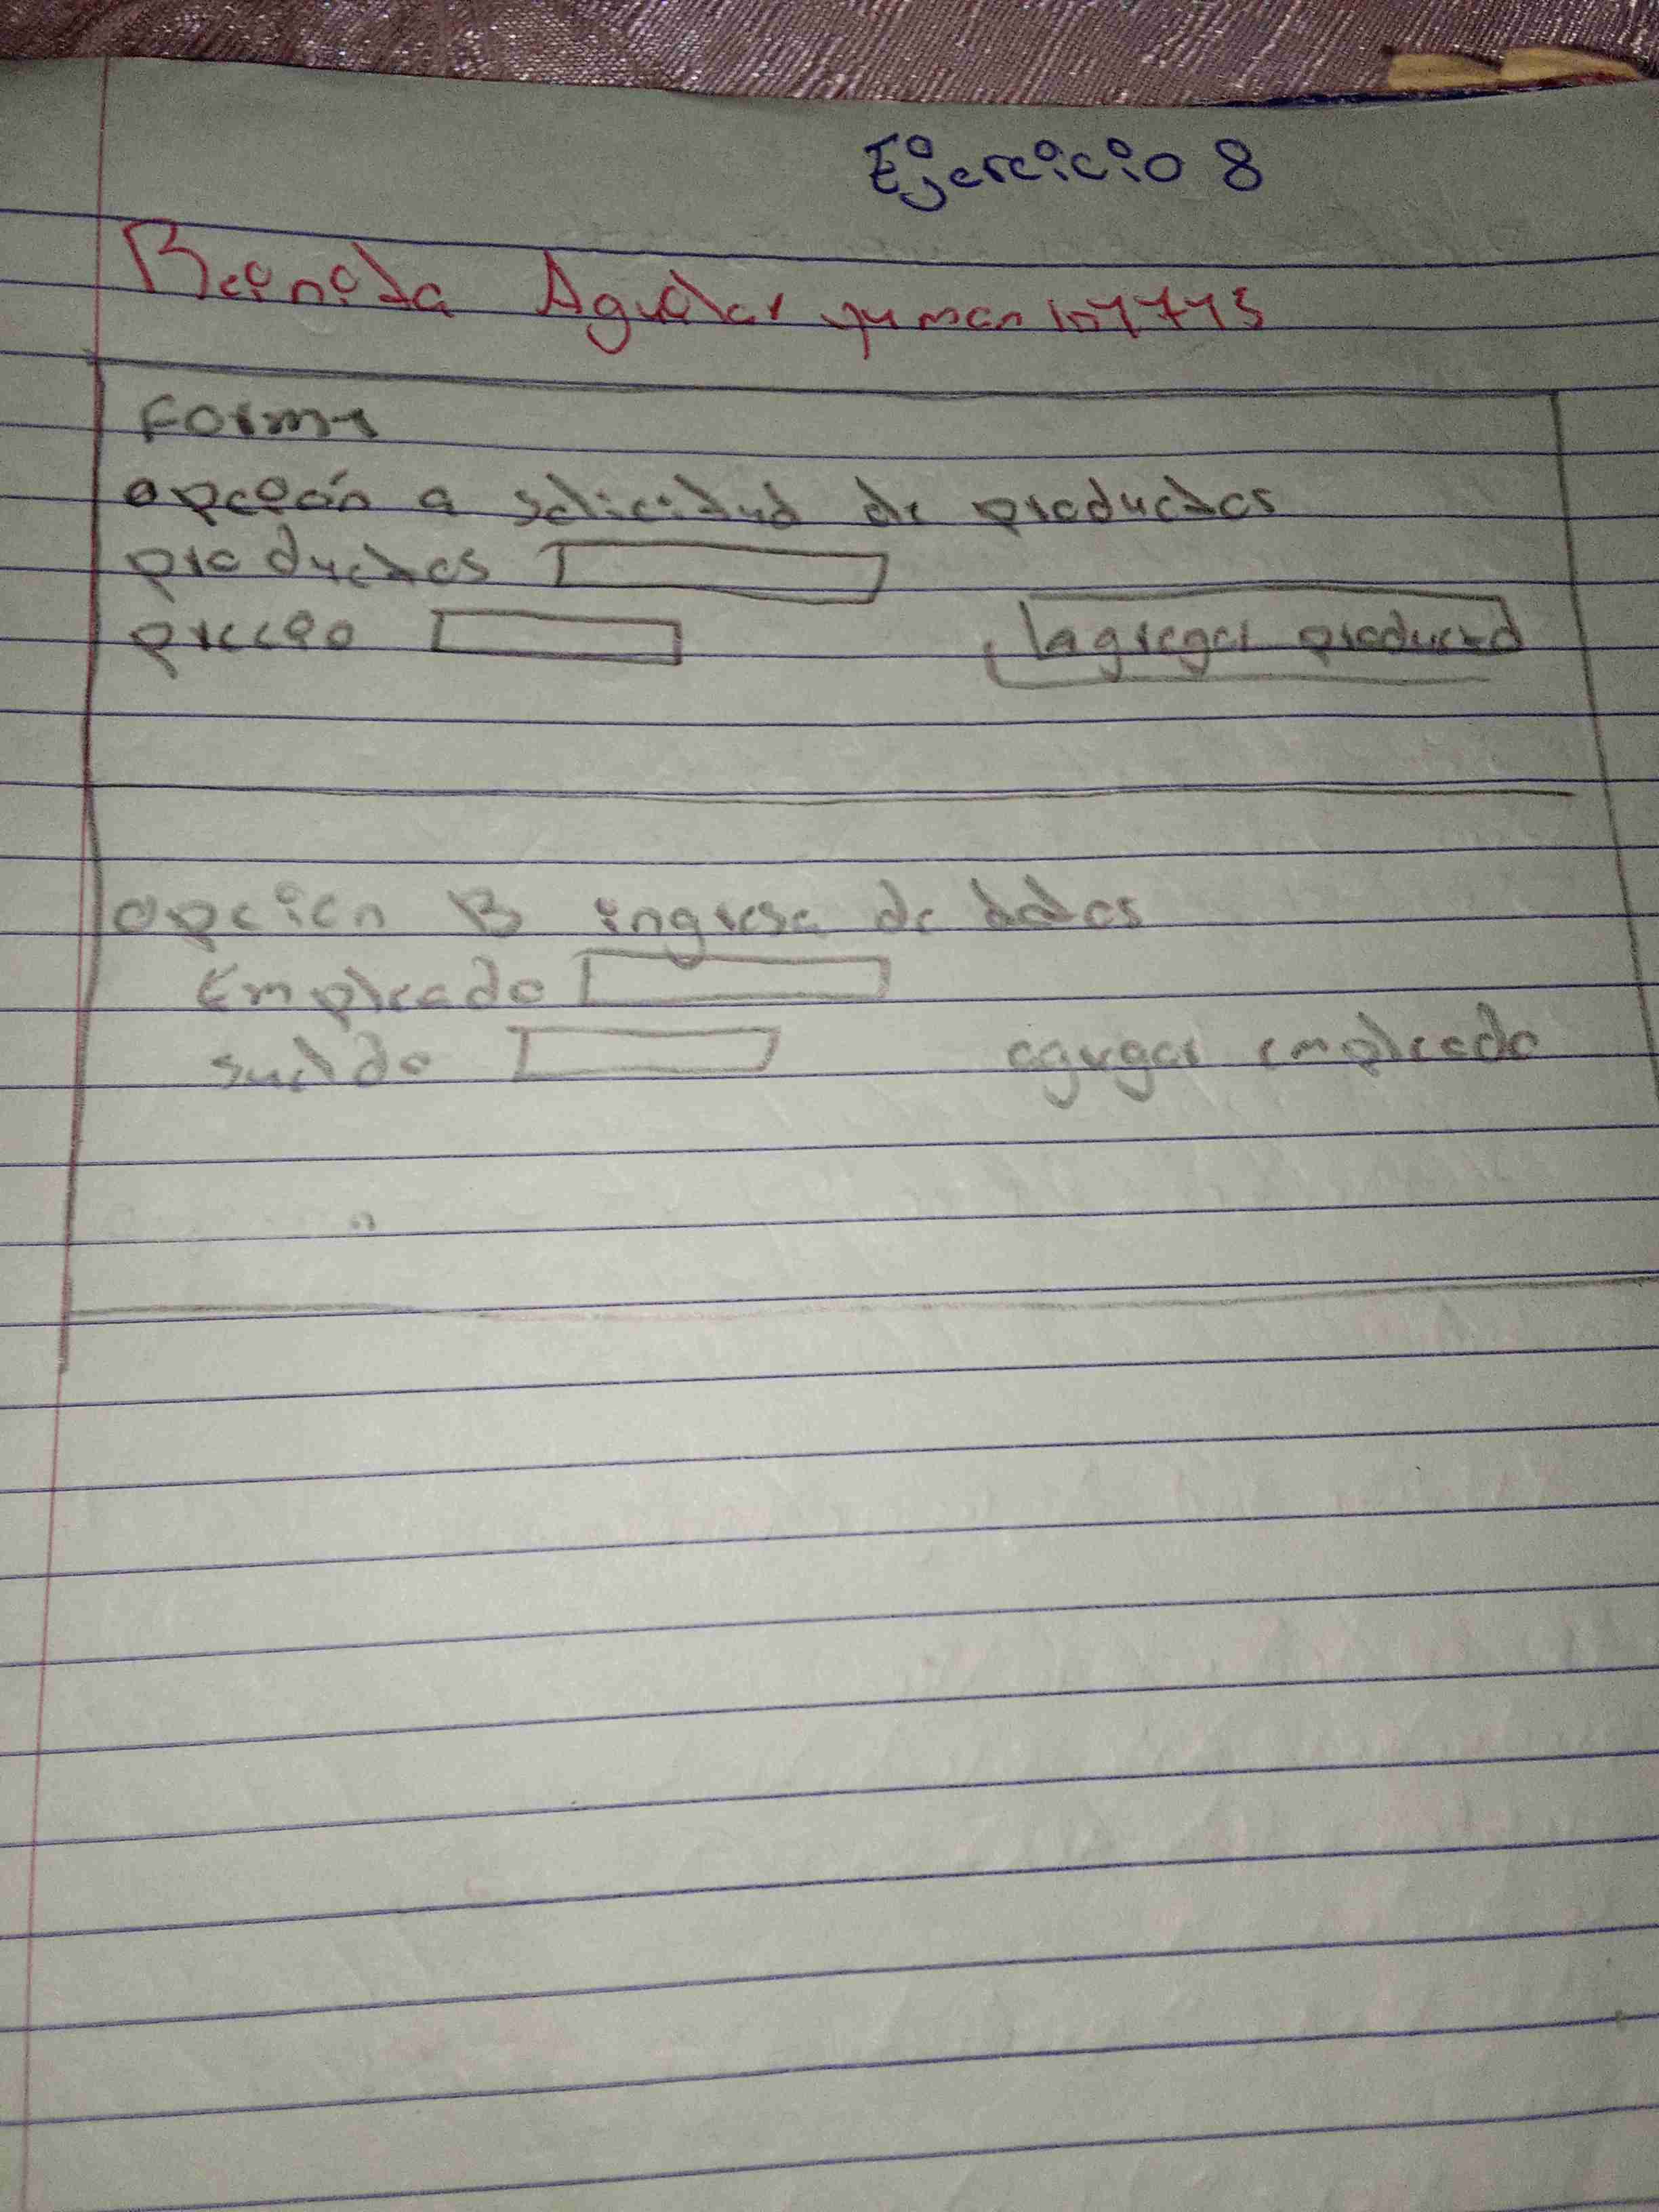 Ejercicio 8
Aguilar yuman
Form 1
opción a solicitud de productos
productos
precio agregar product
opcion B ingreso de datos
Empleado
sueldo agregar empleado